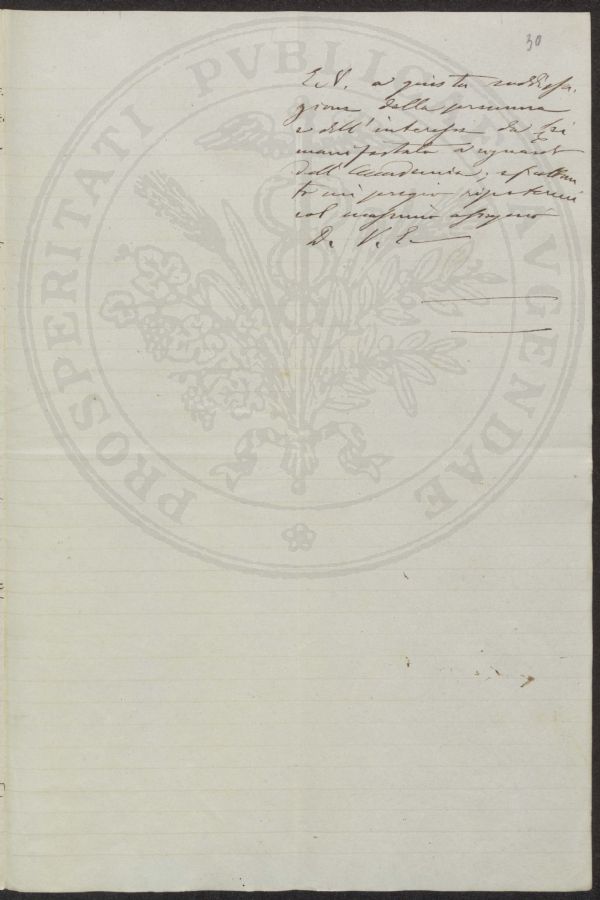 30
E. V. a giusta soddisfa-
zione della premura
e dell'interesse da Lei
manifestato a riguardo
dell'Accademia; e
mi pregio ripetermi
col massimo ossequio
D. V. E.
PROSPERITATI PVBLICAE AVGENDAE